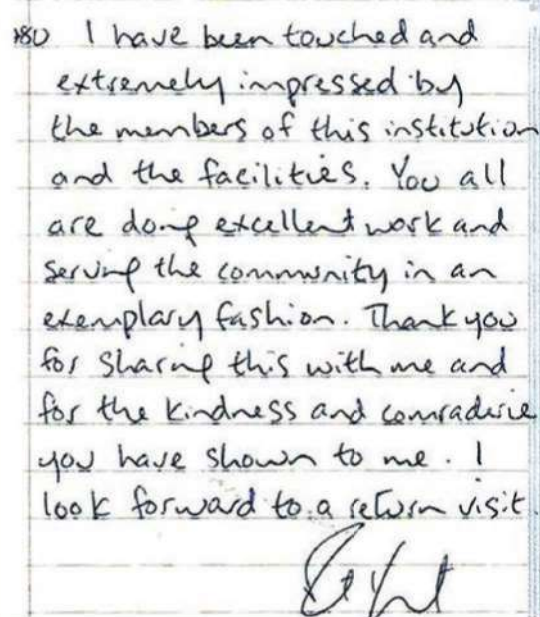 80 I have been touched and
extremely impressed by
the members of this institution
and the facilities. You all
are doing excellent work and
serving the community in an
exemplary fashion. Thank you
for sharing this with me and
for the kindness and comraderie
you have shown to me. I
look forward to a return visit.